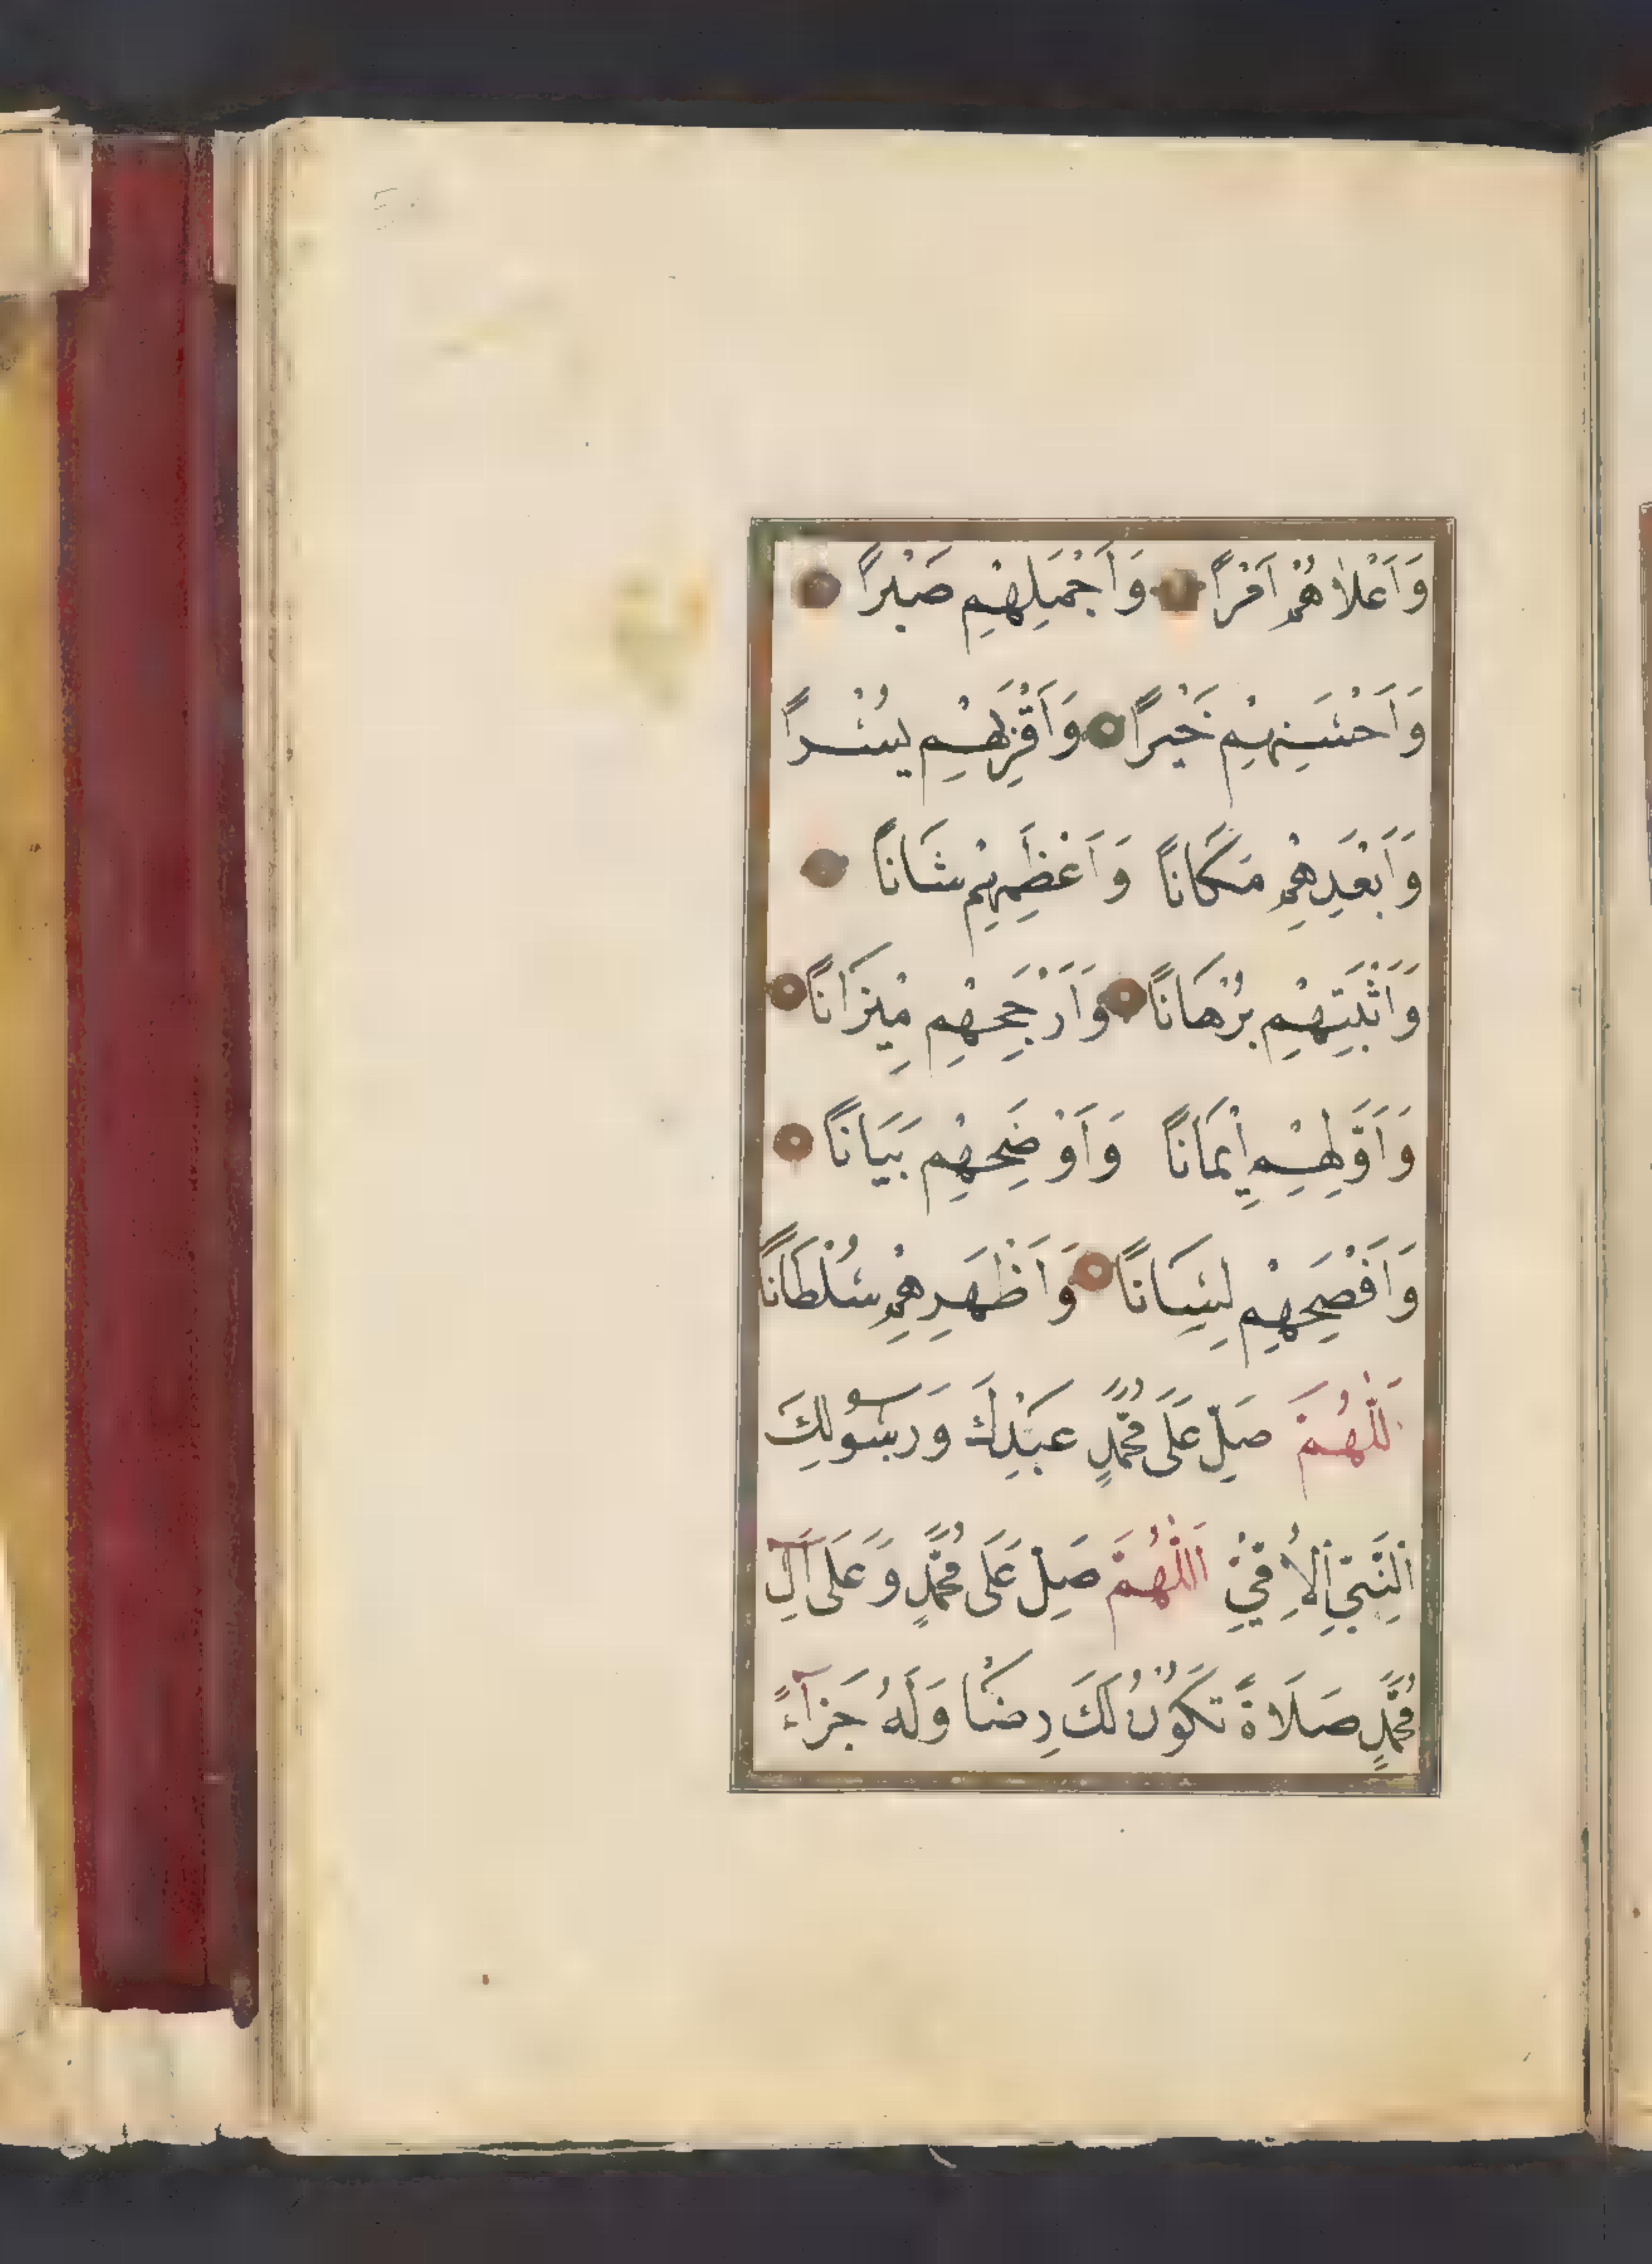 وَاَعْلَاهُمْ اَمْرًا وَاَجْمَلِهِمْ صَبْرًا
وَاَحْسَنِهِمْ خَيْرًا وَاَقْرَبِهِمْ يُسْرًا
وَاَبْعَدِهِمْ مَكَانًا وَاَعْظَمِهِمْ شَانًا
وَاَثْبَتِهِمْ بُرْهَانًا وَاَرْجَحِهِمْ مِيْزَانًا
وَاَوَّلِهِمْ اِيْمَانًا وَاَوْضَحِهِمْ بَيَانًا
وَاَفْصَحِهِمْ لِسَانًا وَاَظْهَرِهِمْ سُلْطَانًا
اَللّٰهُمَّ صَلِّ عَلَى مُحَمَّدٍ عَبْدِكَ وَرَسُولِكَ
اَلنَّبِيِّ الْاُمِّيِّ اَللّٰهُمَّ صَلِّ عَلَى مُحَمَّدٍ وَعَلَى آلِ
مُحَمَّدٍ صَلَاةً تَكُوْنُ لَكَ رِضًا وَلَهُ جَزَآءً